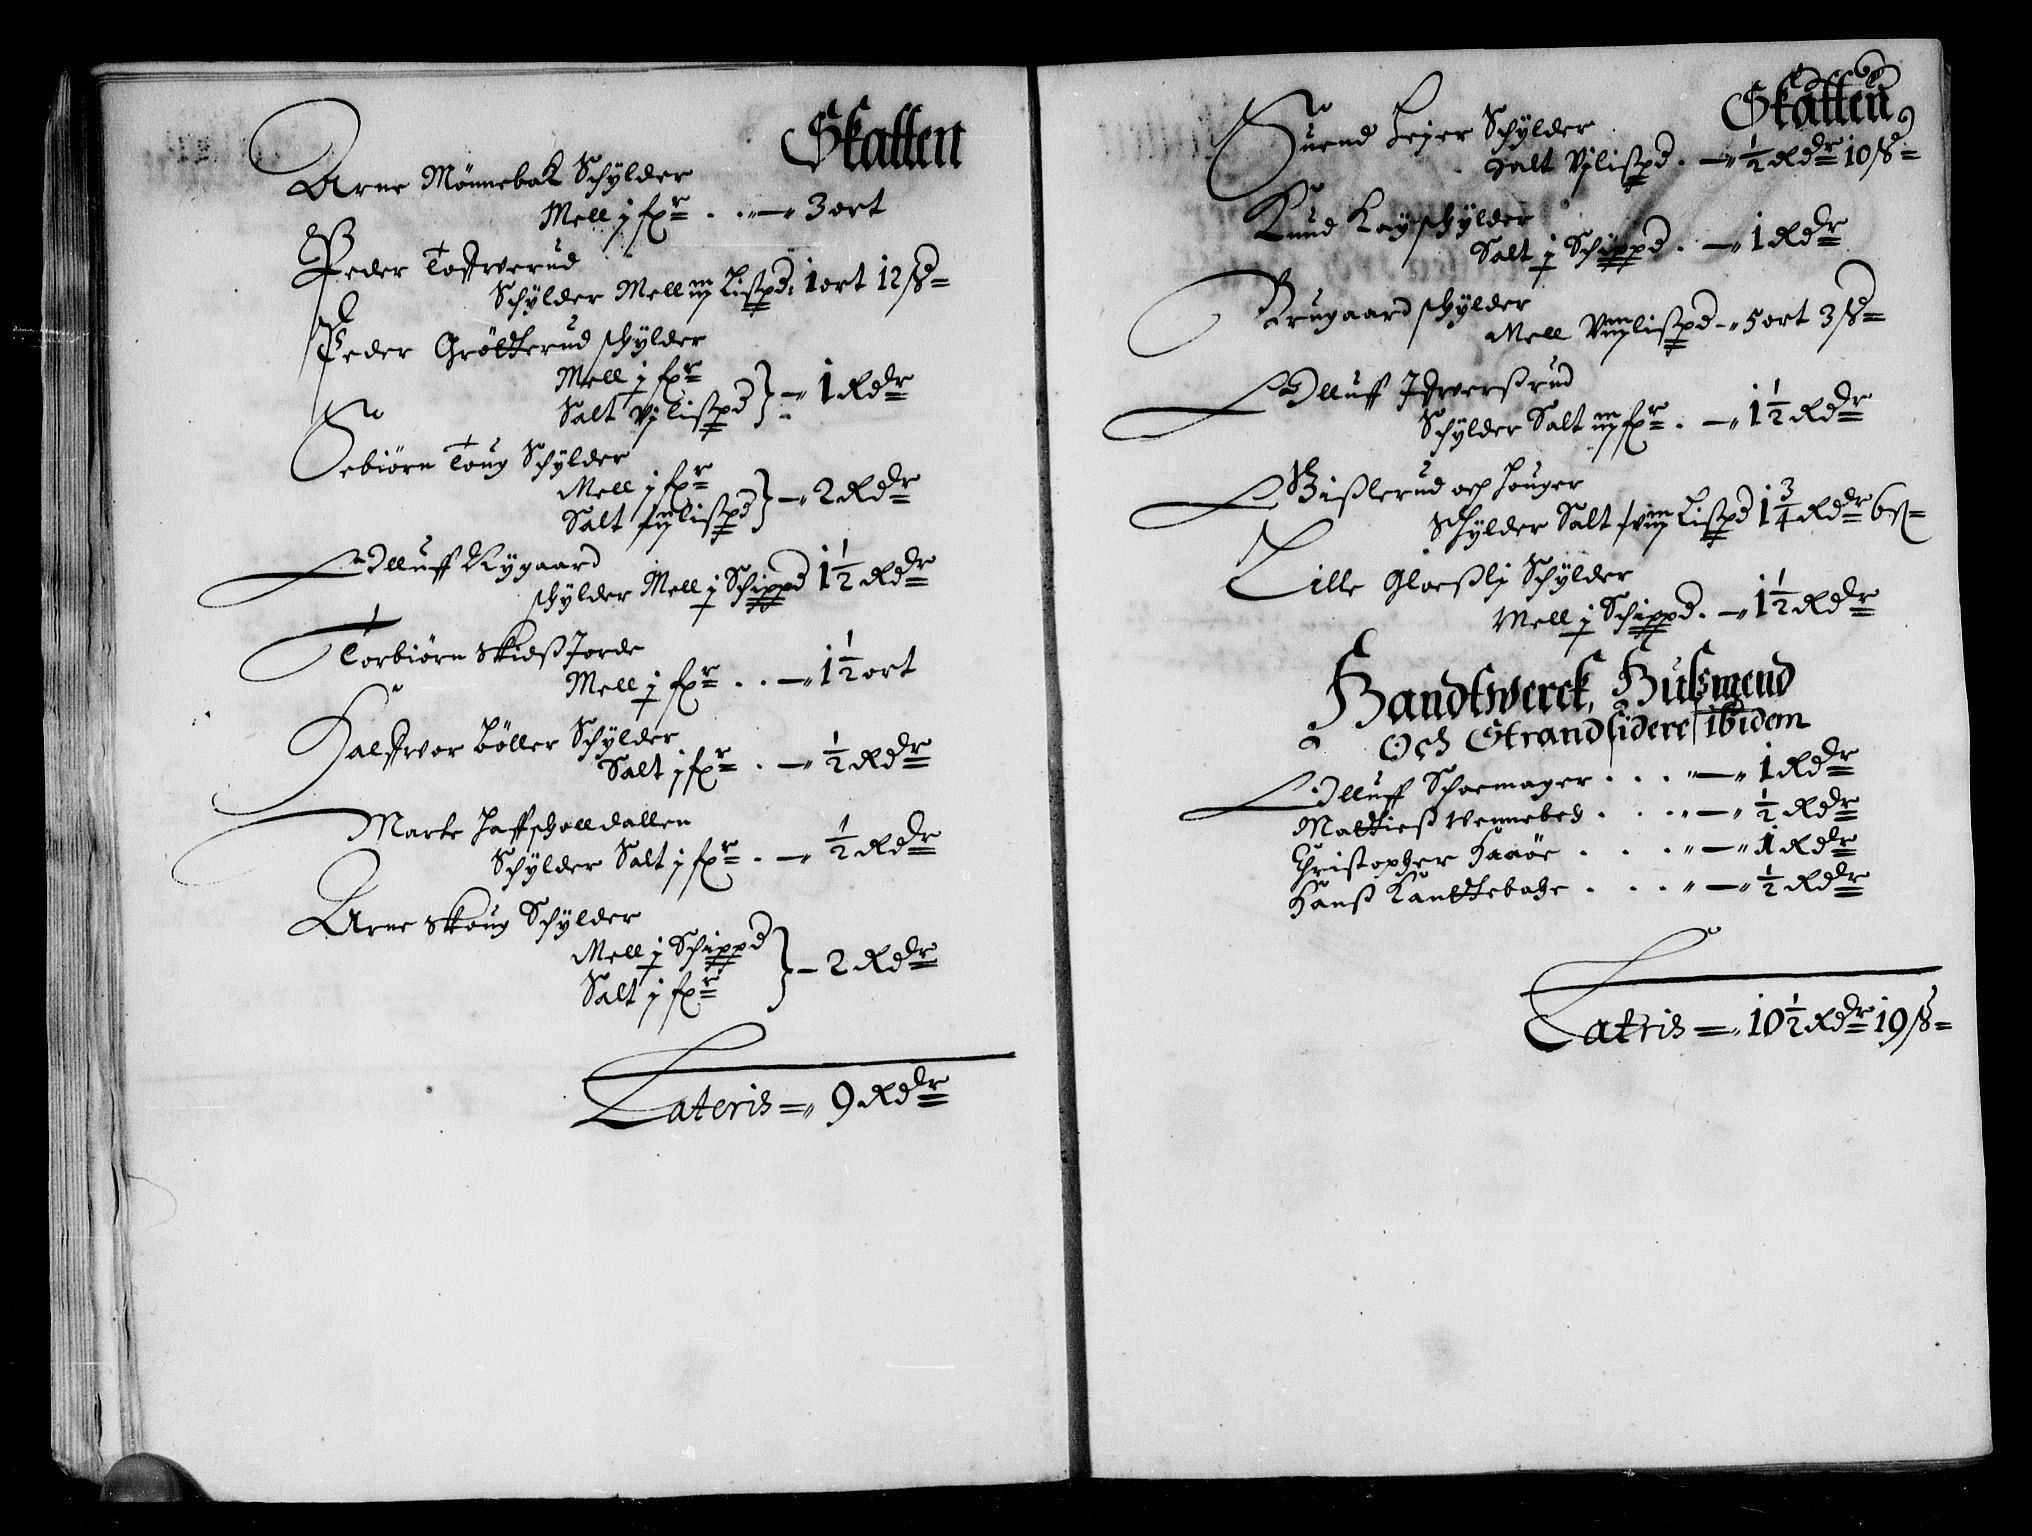 Skatten
Arne Mönnebak Schÿlder
Mell j fxr . . — 3 ort
Peder Tofwerud
Schÿlder Mell iij Lißpd: 1 ort 12 ß
Peder Gröttterud schÿlder
Mell j fxr
Salt Vj lißpd } — 1 Rdr
Sebiörn Toug Schÿlder
Mell j fxr
Salt lißpd } — 2 Rdr
Olluff Rygaard
schÿlder Mell j Schippd 1½ Rdr
Torbiörn Skidßjorde
Mell j fxr . . — 1½ ort
Halfwor Böller Schÿlder
Salt j fxr . — ½ Rdr
Marte Haffscholldallen
Schÿlder Salt j fxr . — ½ Rdr
Arne Skoug Schÿlder
Mell j Schippd
Salt j fxr } — 2 Rdr
Lateris = 9 Rdr
Skatten
Suend Leyer Schÿlder
Salt Vj lißpd . — ½ Rdr 10 ß
Knud Kay schÿlder
Salt j Schippd . — 1 Rdr
Brugaard schÿlder
Mell Viij lißpd — 5 ort 3 ß
Olluff Ifwerßrud
Schÿlder Salt iij fxr . — 1½ Rdr
Bißlerud och Houger
Schÿlder Salt Lißpd 1¾ Rdr 6 ß
Lille Gloeßli Schÿlder
Mell j Schippd . — 1½ Rdr
Handtwerck, Hußmend
Och Strandsidere ibidem
Olluff Schoemager . . . — 1 Rdr
Mattieß Wennebeck . . . — ½ Rdr
Christopher Haaöe . . . — 1 Rdr
Hanß Kanttebohe . . . — ½ Rdr
Lateris = 10½ Rdr 19 ß